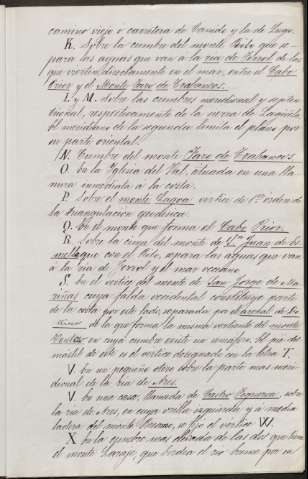 camino viejo ó carretera de Canido y la de Lugo.
K. Sobre la cumbre del monte que se-
para las aguas que van á la ria de Ferrol de las
que vierten directamente en el mar, entre el Cabo
Prior y el Monte Faro de Trabancos.
L y M. Sobre las cumbres meridional y septen-
trional, respectivamente de la sierra de
El meridiano de la segunda limita el plano por
su parte oriental.
N. Cumbre del monte Faro de Trabancos.
O. En la Iglesia del Val, situada en una lla-
nura inmediata á la costa.
P. Sobre el monte vértice de 1er orden de
la triangulacion geodésica.
Q. En el monte que forma el Cabo Prior.
R. Sobre la cima del monte de Sn Juan de Es-
que con el separa las aguas que van
á la ria de Ferrol y al mar océano.
S. En el vértice del monte de San Jorge de Ma-
riñas cuya falda occidental constituye parte
de la costa por este lado, separada por el
de la que forma la misma vertiente del monte
en cuya cumbre existe un semáforo. El pié del
mástil de este es el vértice designado con la letra T.
V. En un pequeño cerro sobre la parte mas meri-
dional de la ria de Ares.
V. En una casa, llamada de sobre
la ria de Ares, en cuya orilla izquierda y á media
ladera del monte se fijó el vértice W.
X. En la cumbre mas elevada de las dos que tiene
el monte que bordea el rio Eume por su